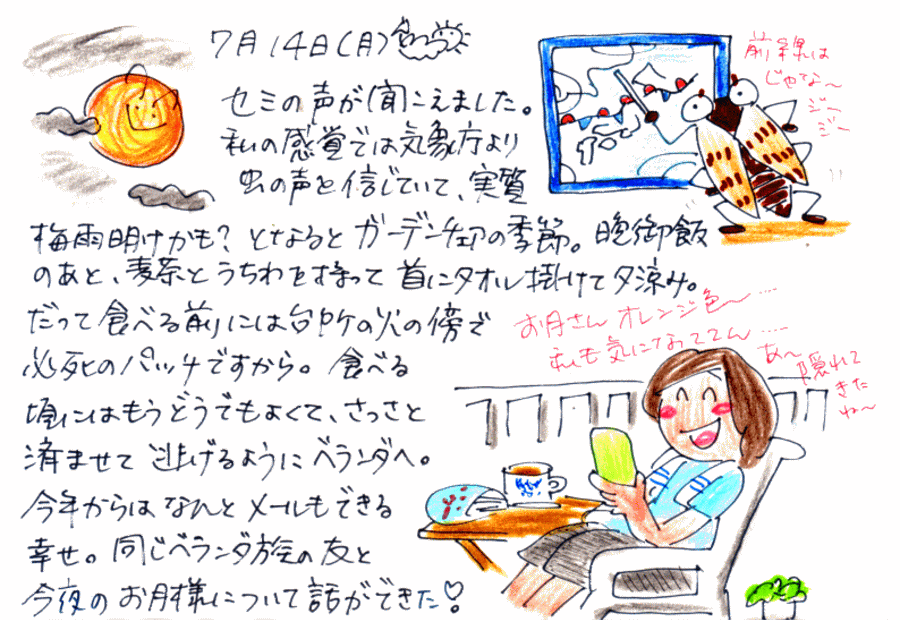 7月14日(月)
セミの声が聞こえました。
私の感覚では気象庁より
虫の声を信じていて、実質
梅雨明けかも?となるとガーデンチェアの季節。晩御飯
のあと、麦茶とうちわを持って首にタオル掛けて夕涼み。
だって食べる前には台所の火の傍で
必死のパッチですから。食べる
頃にはもうどうでもよくて、さっさと
済ませて逃げるようにベランダへ。
今年からはなんとメールもできる
幸せ。同じベランダ族の友と
今夜のお月様について話ができた♡!
前線は
じゃな〜
ジー
ジー
お月さんオレンジ色〜…
私も気になっててん…
あ〜
隠れて
きた
ね〜